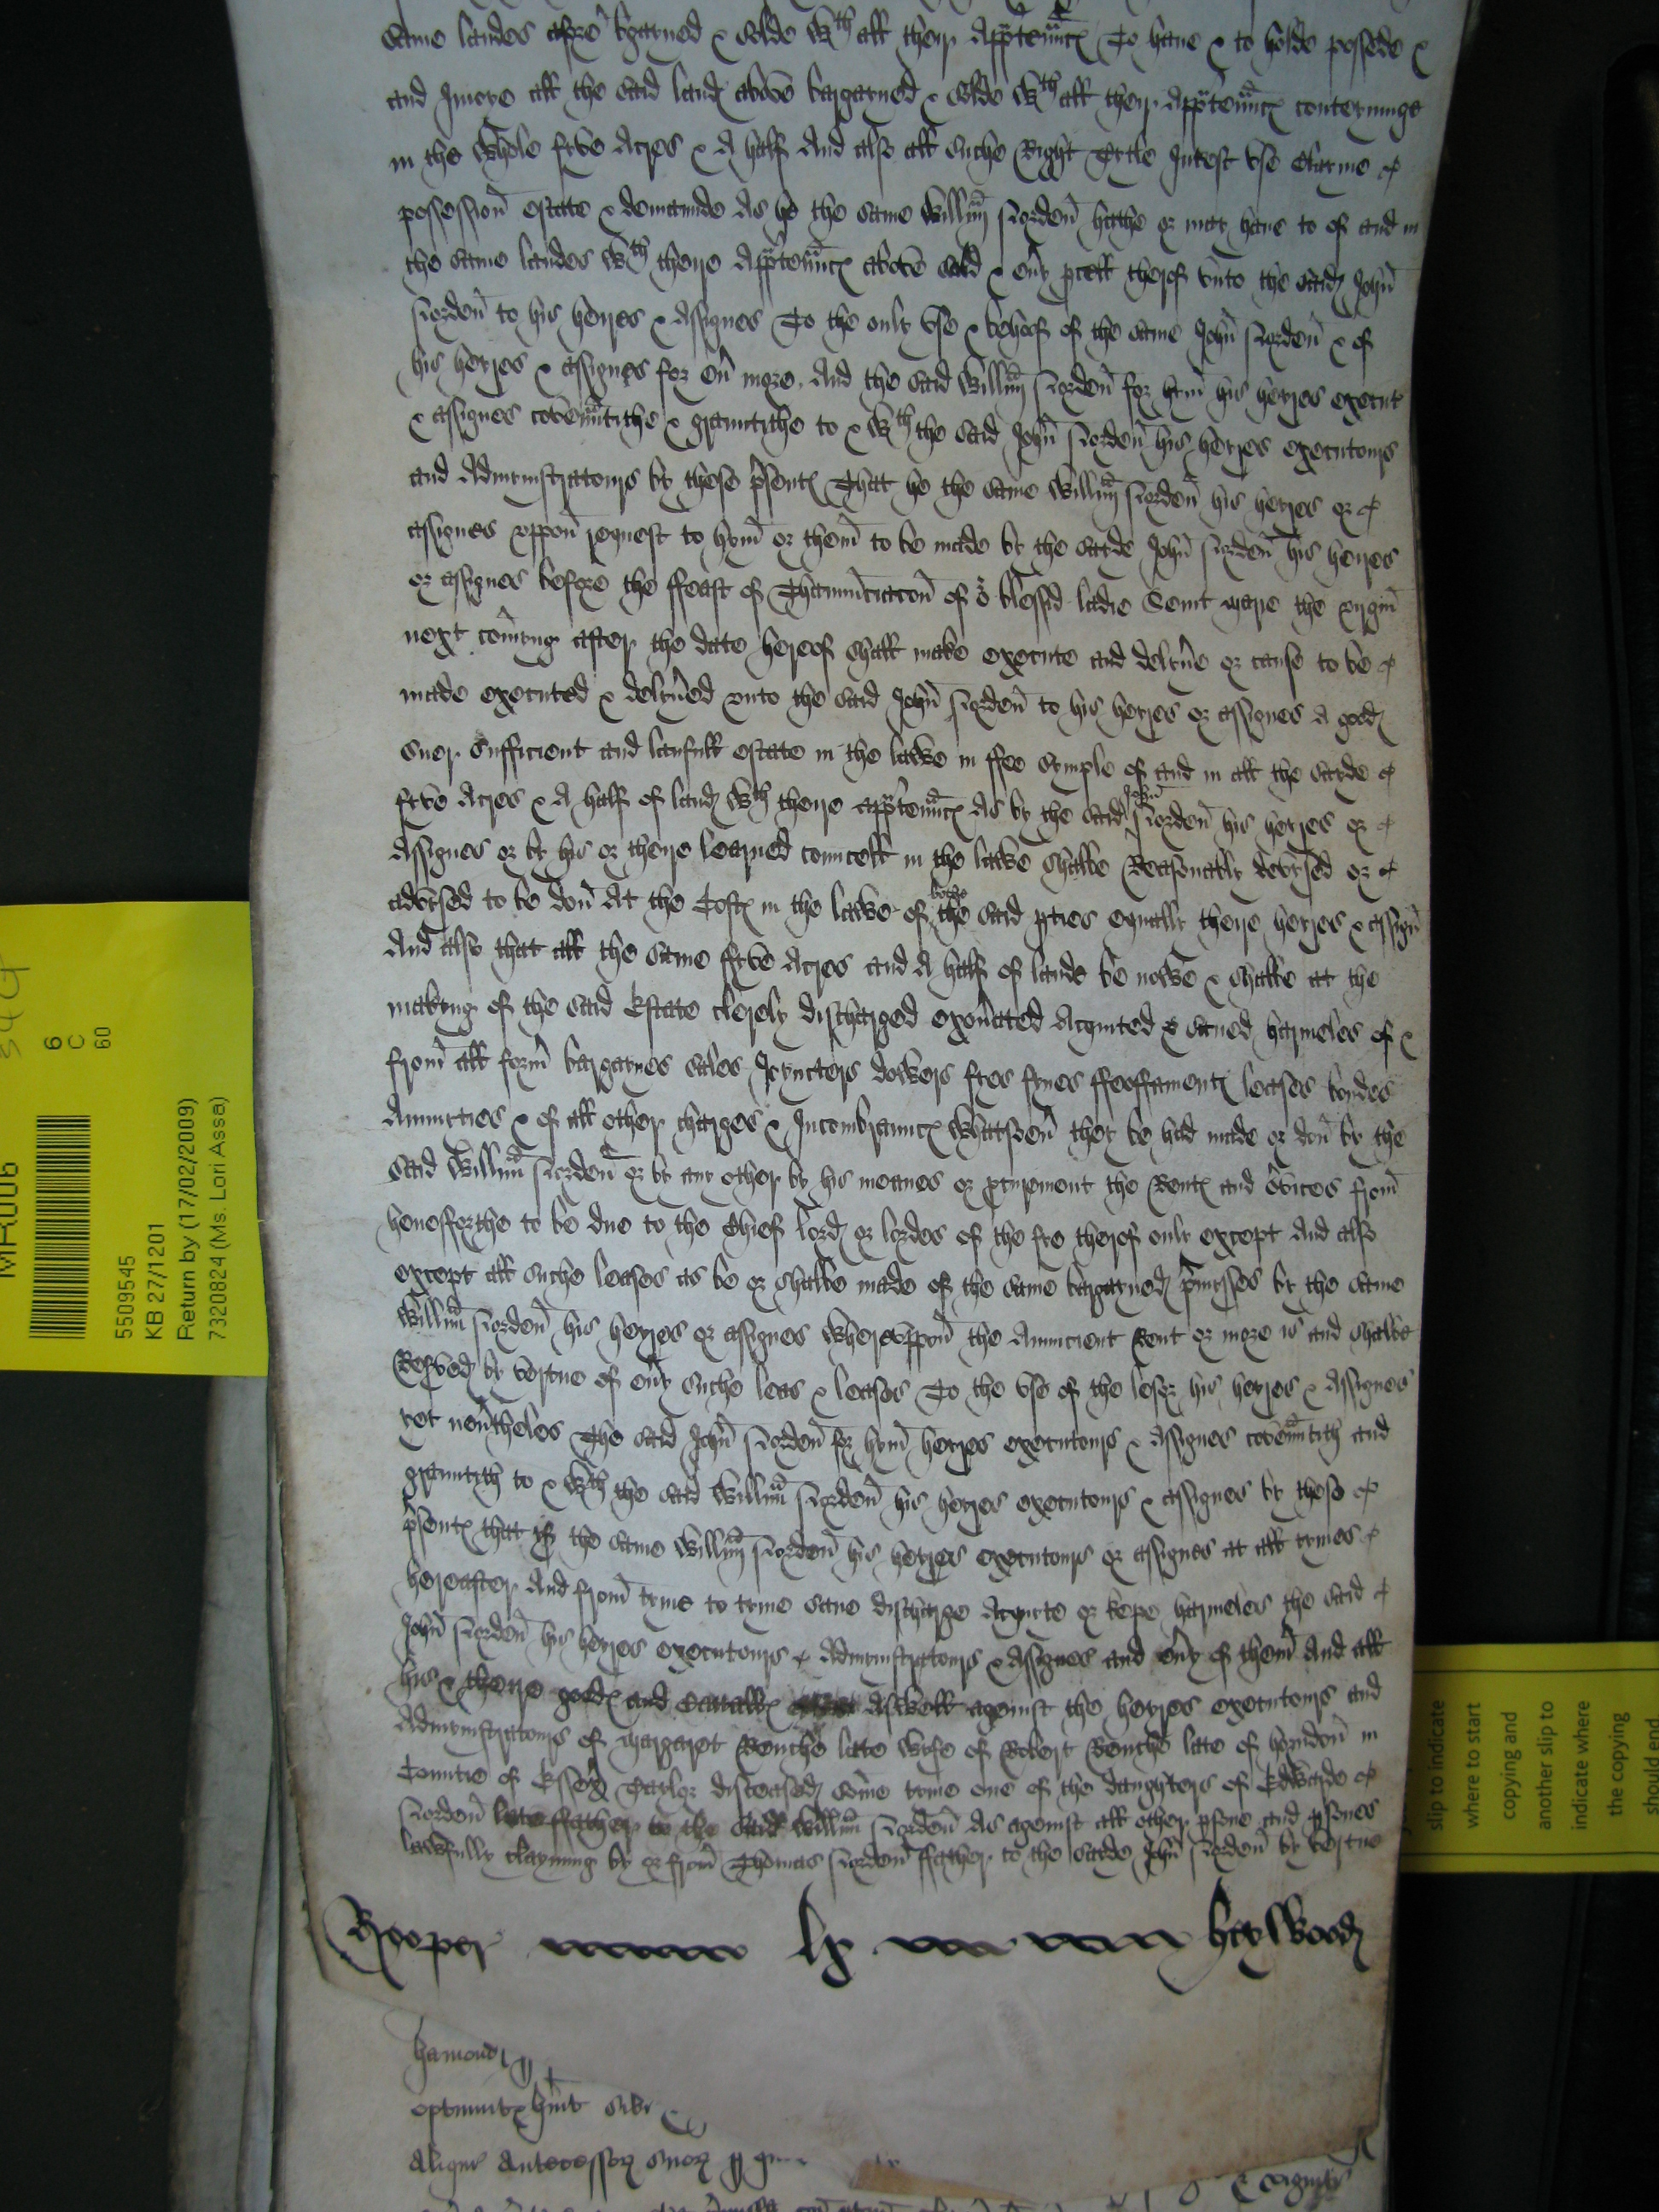 same landes afore bgayned & solde wth all theyr Apptennce To haue & to holde possede &
and Inioye all the said land above bargayned & solde wth all theyr Apptennce conteyninge
in the whole fyve Acres & A half And also all suche Right Tytle Intest vse clayme
possession estate & demaunde As he the same Willm Norden hathe or may haue to of and in
the same landes wth theyre Apptennce above sold & euy pcell therof vnto the said John
Norden to his heyres & Assignes To the only vse & behoof of the same John Norden & of
his heyres & assignes for eu more. And the said Willm Norden for hym his heyres execut
& assignes covenntithe & grauntithe to & wth the said John Norden his heyres executours
and Admynystratours by these psente That he the same Willm Norden his heyres or
assignes vppon request to hym or them to be made by the saide John Norden his heyres
or assignes before the ffeast of Thannuciacon of or blessid ladie Seint Marie the virgin
next comyng after the date hereof shall make execute and delyue or cause to be
made executed & delyued vnto the said John Norden to his heyres or assignes A good
suer sufficient and laufull estate in the lawe in ffee symple of and in all the saide
fyve Acres & A half of land wth theyre apptennce As by the said John Norden his heyres or
Assignes or by his or theyre learned councell in the lawe shalbe Reasonably devysed or
advysed to be don At the Coste in the lawe of bothe the said pties equally theyre heyres & assign
And also that all the same fyve Acres and A half of lande be nowe & shalbe at the
makyng of the said Estate clerely discharged exonated Acquited & saued harmeles of &
from all form bargaynes sales Ioyncters dowers fees fynes ffeoffamente leases bondes
Annuyties & of all other charges & Incombraunce whatsoeu they be had made or don by the
said Willm Norden or by any other by his meanes or pcurement the Rente and svices from
hensfforthe to be due to the Chief lord or lordes of the fee therof only except And also
except all suche leases as be or shalbe made of the same bargayned pmysses by the same
Willm Norden his heyres or assignes Wherevppon the Auncient Rent or more is and shalbe
Resved by vertue of euy suche leas & leases To the vse of the lesser his heyres & Assignes
yet neutheles The said John Norden for hym heyres executours & Assignes covenntith and
grauntith to & wth the said Willm Norden his heyres executours & assignes by these
psente that if the same Willm Norden his heyres executours or assignes at all tymes
hereafter And from tyme to tyme saue discharge Acquite or kepe harmeles the said
John Norden his heyres executours & Admynystratours & Assignes and euy of them And all
his & theyre goode and Cattalle Aswell ageinst the heyres executours and
Admynystratours of Margaret Benche late wyfe of Robert Benche late of horndon in
Countie of Essex Taylor disceased some tyme one of the daughters of Edwarde
Norden late ffather to the said Willm Norden As ageinst all other psone and psones
lawfully clayming by or from Thomas Norden ffather to the saide John Norden by vertue
Rooper lx heywood
hamond
Aliqui Antecessor suor